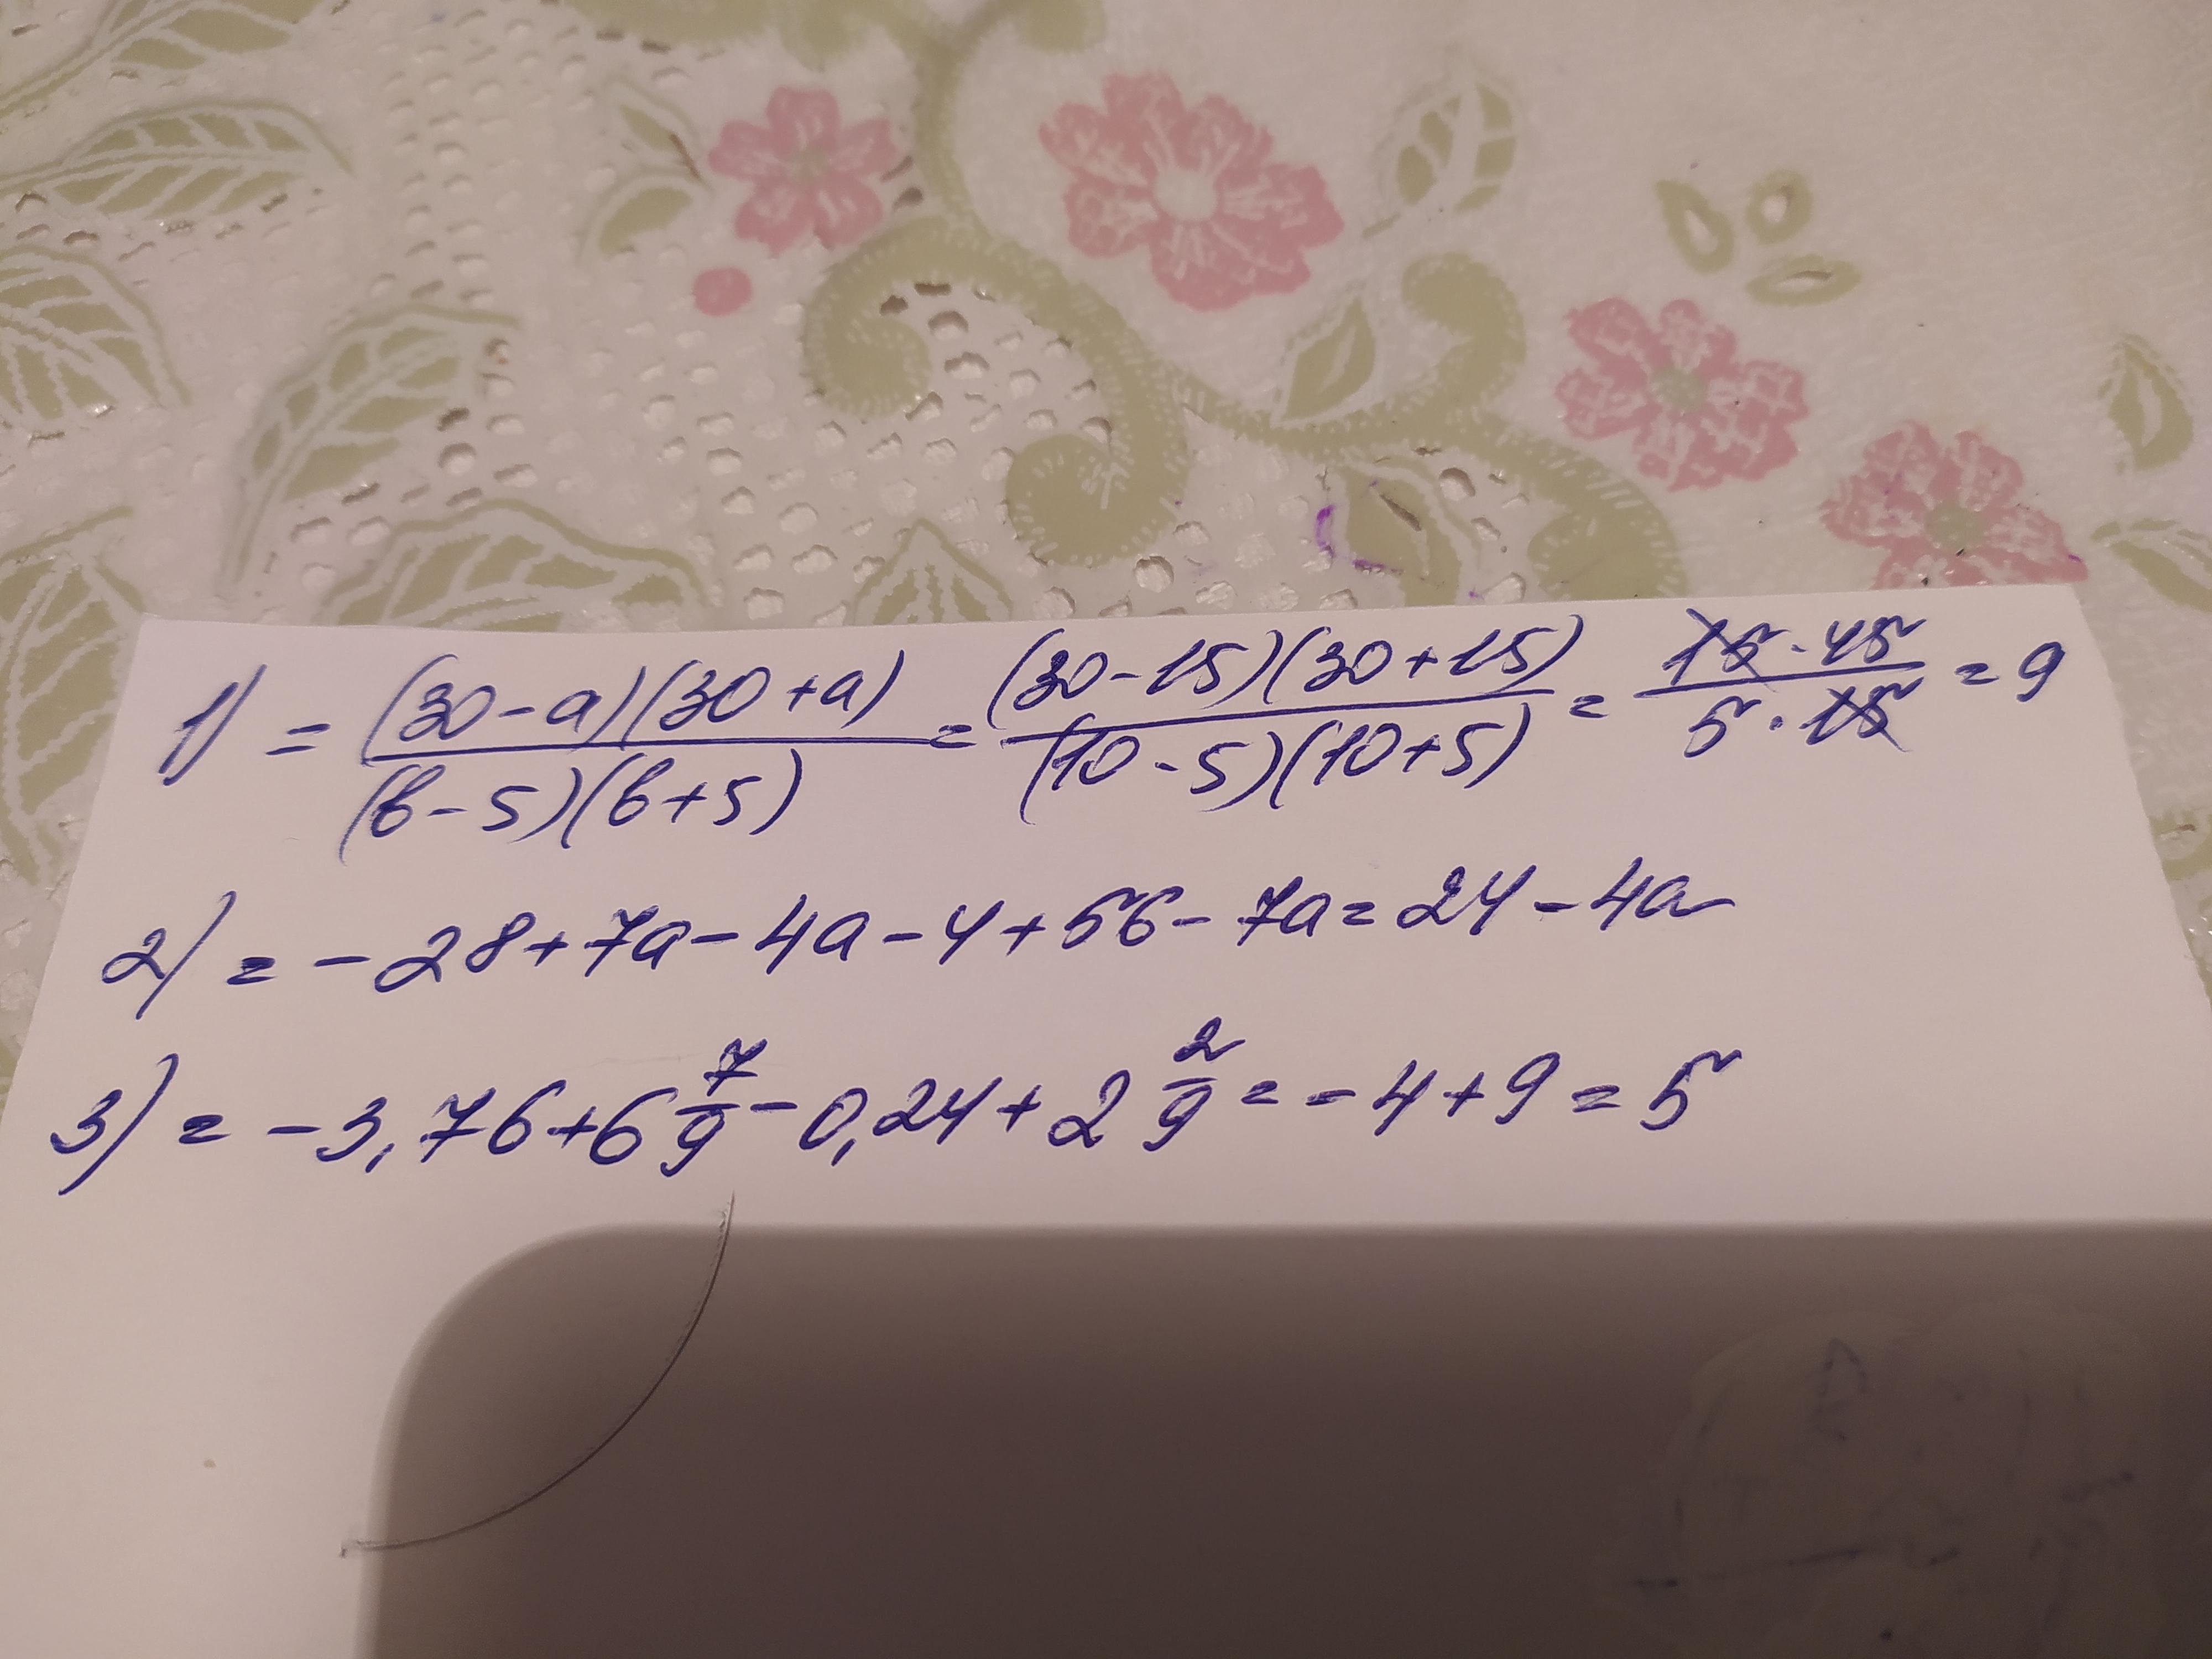 1) = (30-a)(30+a)/(b-5)(b+5) = (30-15)(30+15)/(10-5)(10+5) = 15·45/5·15 = 9
2) = -28+7a-4a-4+56-7a=24-4a
3) = -3,76+6 7/9-0,24+2 2/9=-4+9=5